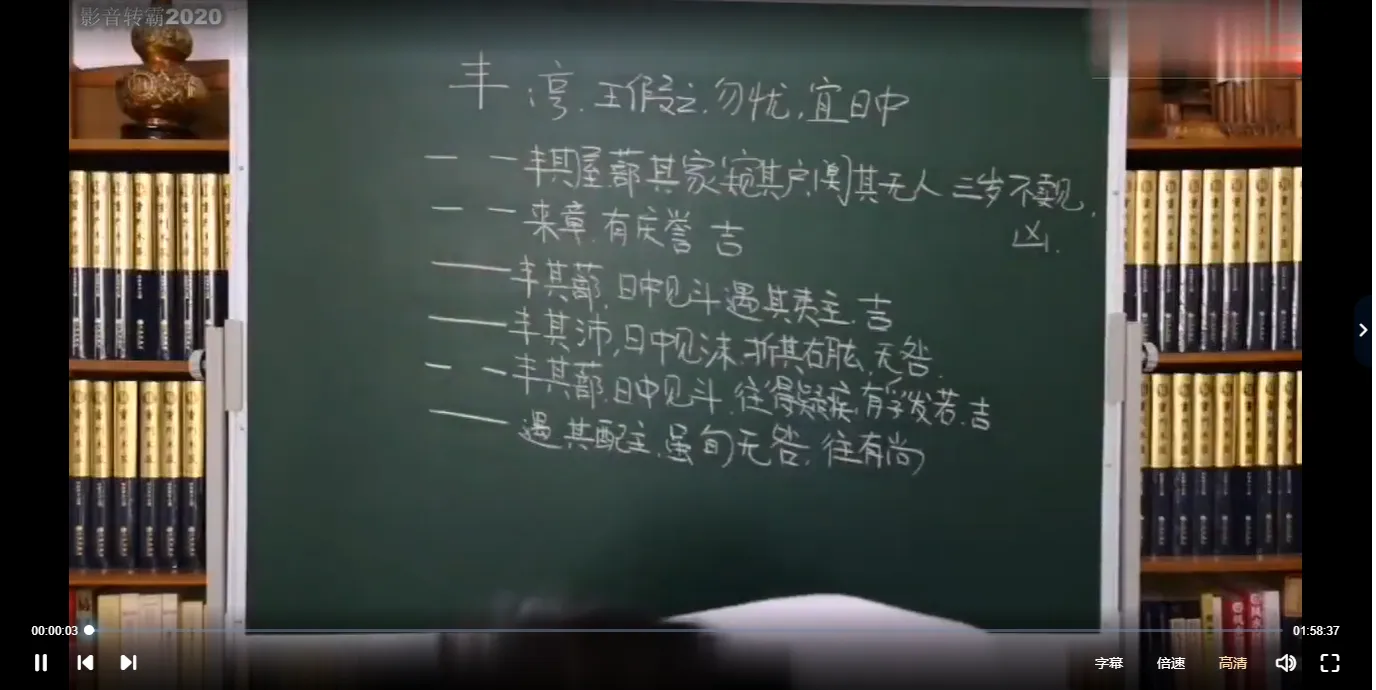 影音转霸2020
丰 亨.王假之.勿忧,宜日中
丰其屋,蔀其家,窥其户,阒其无人 三岁不觌见,
凶.
来章.有庆誉 吉
丰其蔀,日中见斗遇其夷主.吉
丰其沛,日中见沫.折其右肱,无咎.
丰其蔀.日中见斗.往得疑疾,有孚发若.吉
遇其配主.虽旬无咎.往有尚
00:00:03
01:58:37
字幕 倍速 高清